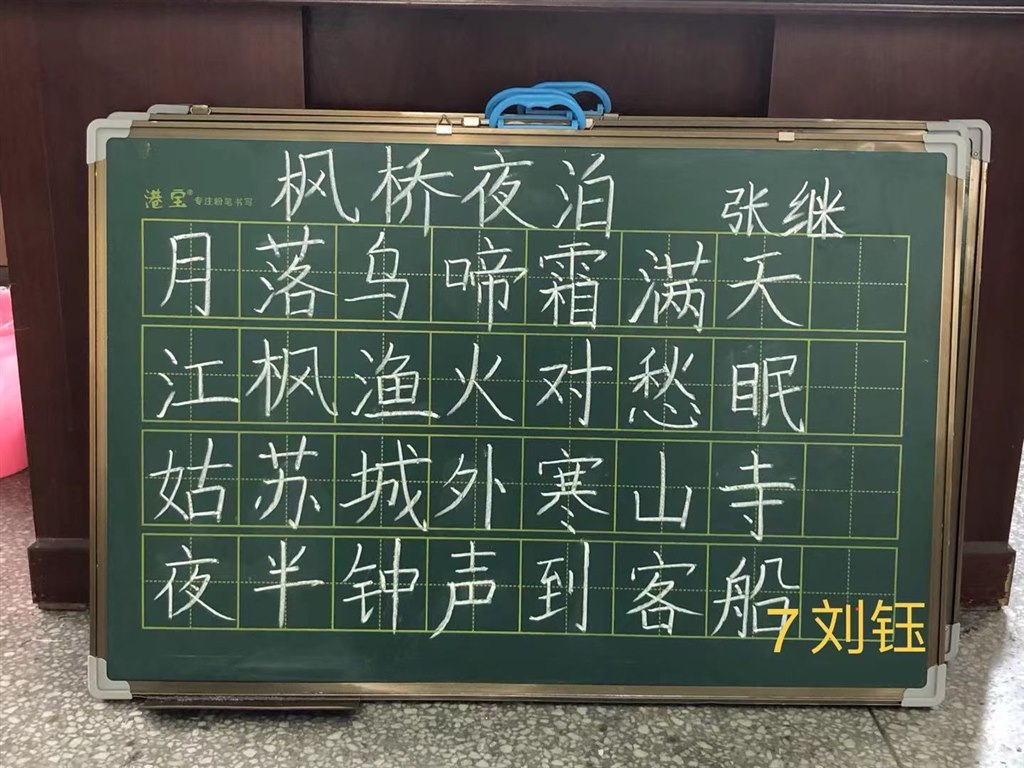 枫桥夜泊 张继
港宝® 专注粉笔书写
月落乌啼霜满天
江枫渔火对愁眠
姑苏城外寒山寺
夜半钟声到客船
7 刘钰